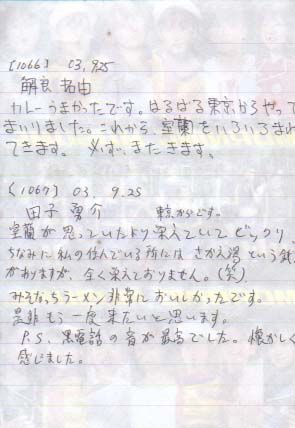 [1066] 03, 9.25
解良 拓由
カレーうまかったです。はるばる東京からやって
まいりました。これから、室蘭をいろいろまわ
てきます。 必ず、またきます。
[1067] 03. 9.25
田子 勇介 東京からです。
室蘭が思っていたより栄えていてビックリ
ちなみに私の住んでいる所にはさかえ湯という銭
がありますが、全く栄えておりません。(笑)
みそなっちラーメン非常においしかったです。
是非もう一度来たいと思います。
P.S. 黒電話の音が最高でした。懐かしく
感じました。